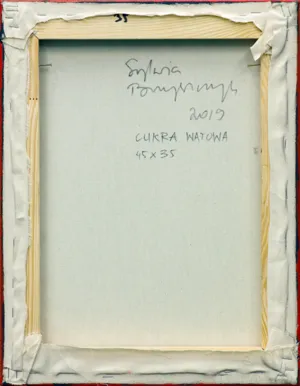 35
Sylwia
2019
CUKRA WATOWA
45x35